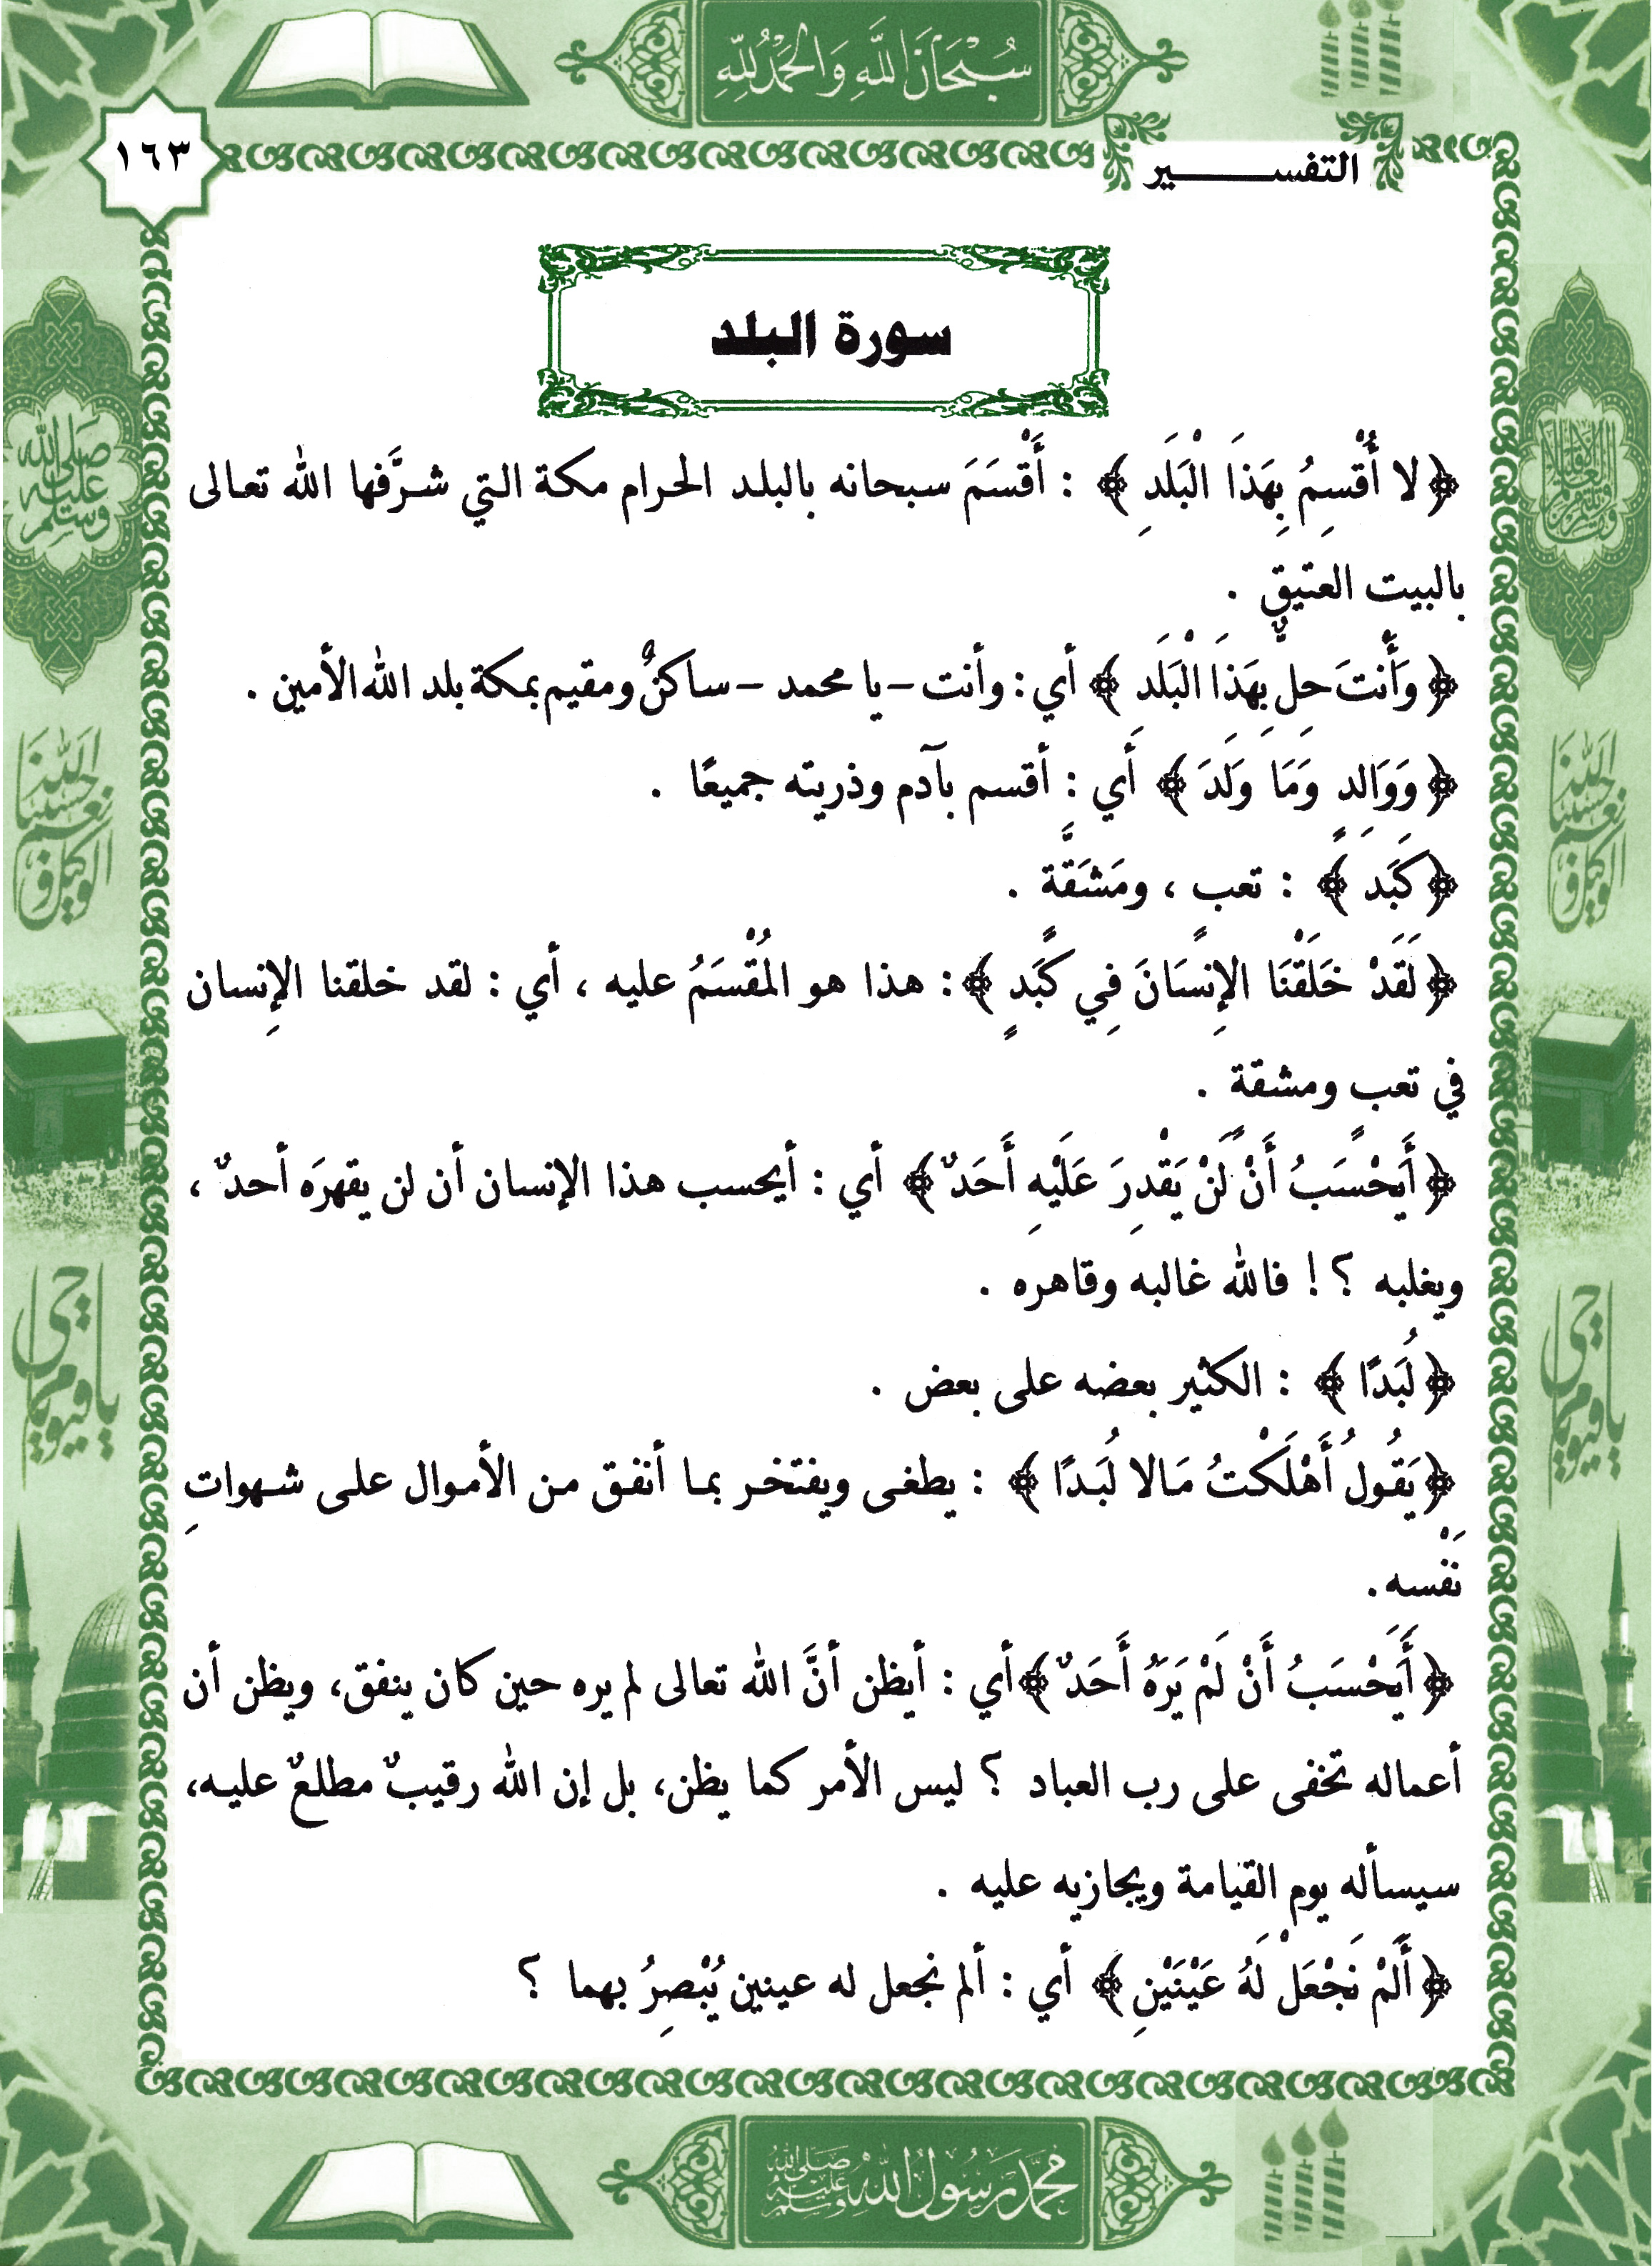 سُبْحَانَ اللَّهِ وَالْحَمْدُ لِلَّهِ
١٦٣
التفسير
سورة البلد
﴿ لا أُقْسِمُ بِهَذَا الْبَلَدِ ﴾ : أَقْسَمَ سبحانه بالبلد الحرام مكة التي شرَّفها الله تعالى
بالبيت العتيق .
﴿ وَأَنتَ حِلٌّ بِهَذَا الْبَلَدِ ﴾ أي : وأنت – يا محمد – ساكنٌ ومقيم بمكة بلد الله الأمين .
﴿ وَوَالِدٍ وَمَا وَلَدَ ﴾ أي : أقسم بآدم وذريته جميعًا .
﴿ كَبَدٍ ﴾ : تعب ، ومَشَقَّة .
﴿ لَقَدْ خَلَقْنَا الإِنسَانَ فِي كَبَدٍ ﴾ : هذا هو المُقْسَمُ عليه ، أي : لقد خلقنا الإنسان
في تعب ومشقة .
﴿ أَيَحْسَبُ أَنْ لَنْ يَقْدِرَ عَلَيْهِ أَحَدٌ ﴾ أي : أيحسب هذا الإنسان أن لن يقهرَه أحدٌ ،
ويغلبه ؟ ! فالله غالبه وقاهره .
﴿ لُبَدًا ﴾ : الكثير بعضه على بعض .
﴿ يَقُولُ أَهْلَكْتُ مَالا لُبَدًا ﴾ : يطغى ويفتخر بما أنفق من الأموال على شهواتِ
نَفْسه .
﴿ أَيَحْسَبُ أَنْ لَمْ يَرَهُ أَحَدٌ ﴾ أي : أيظن أنَّ الله تعالى لم يره حين كان ينفق، ويظن أن
أعماله تخفى على رب العباد ؟ ليس الأمر كما يظن، بل إن الله رقيبٌ مطلعٌ عليه،
سيسأله يوم القيامة ويجازيه عليه .
﴿ أَلَمْ نَجْعَلْ لَهُ عَيْنَيْنِ ﴾ أي : ألم نجعل له عينين يُبْصِرُ بهما ؟
محمد رسول الله صلى الله عليه وسلم
صلى الله عليه وسلم
حسبنا الله ونعم الوكيل
يا حي يا قيوم
حسبنا الله ونعم الوكيل
يا حي يا قيوم